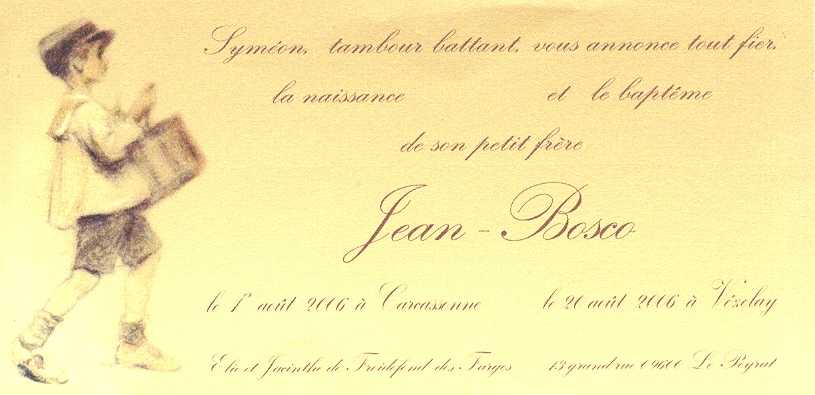 Syméon, tambour battant, vous annonce tout fier,
la naissance et le baptême
de son petit frère
Jean - Bosco
le 1er août 2006 à Carcassonne le 20 août 2006 à Vézelay
Elie et Jacinthe de Froidefond des Farges 13 grand rue 09600 Le Peyrat